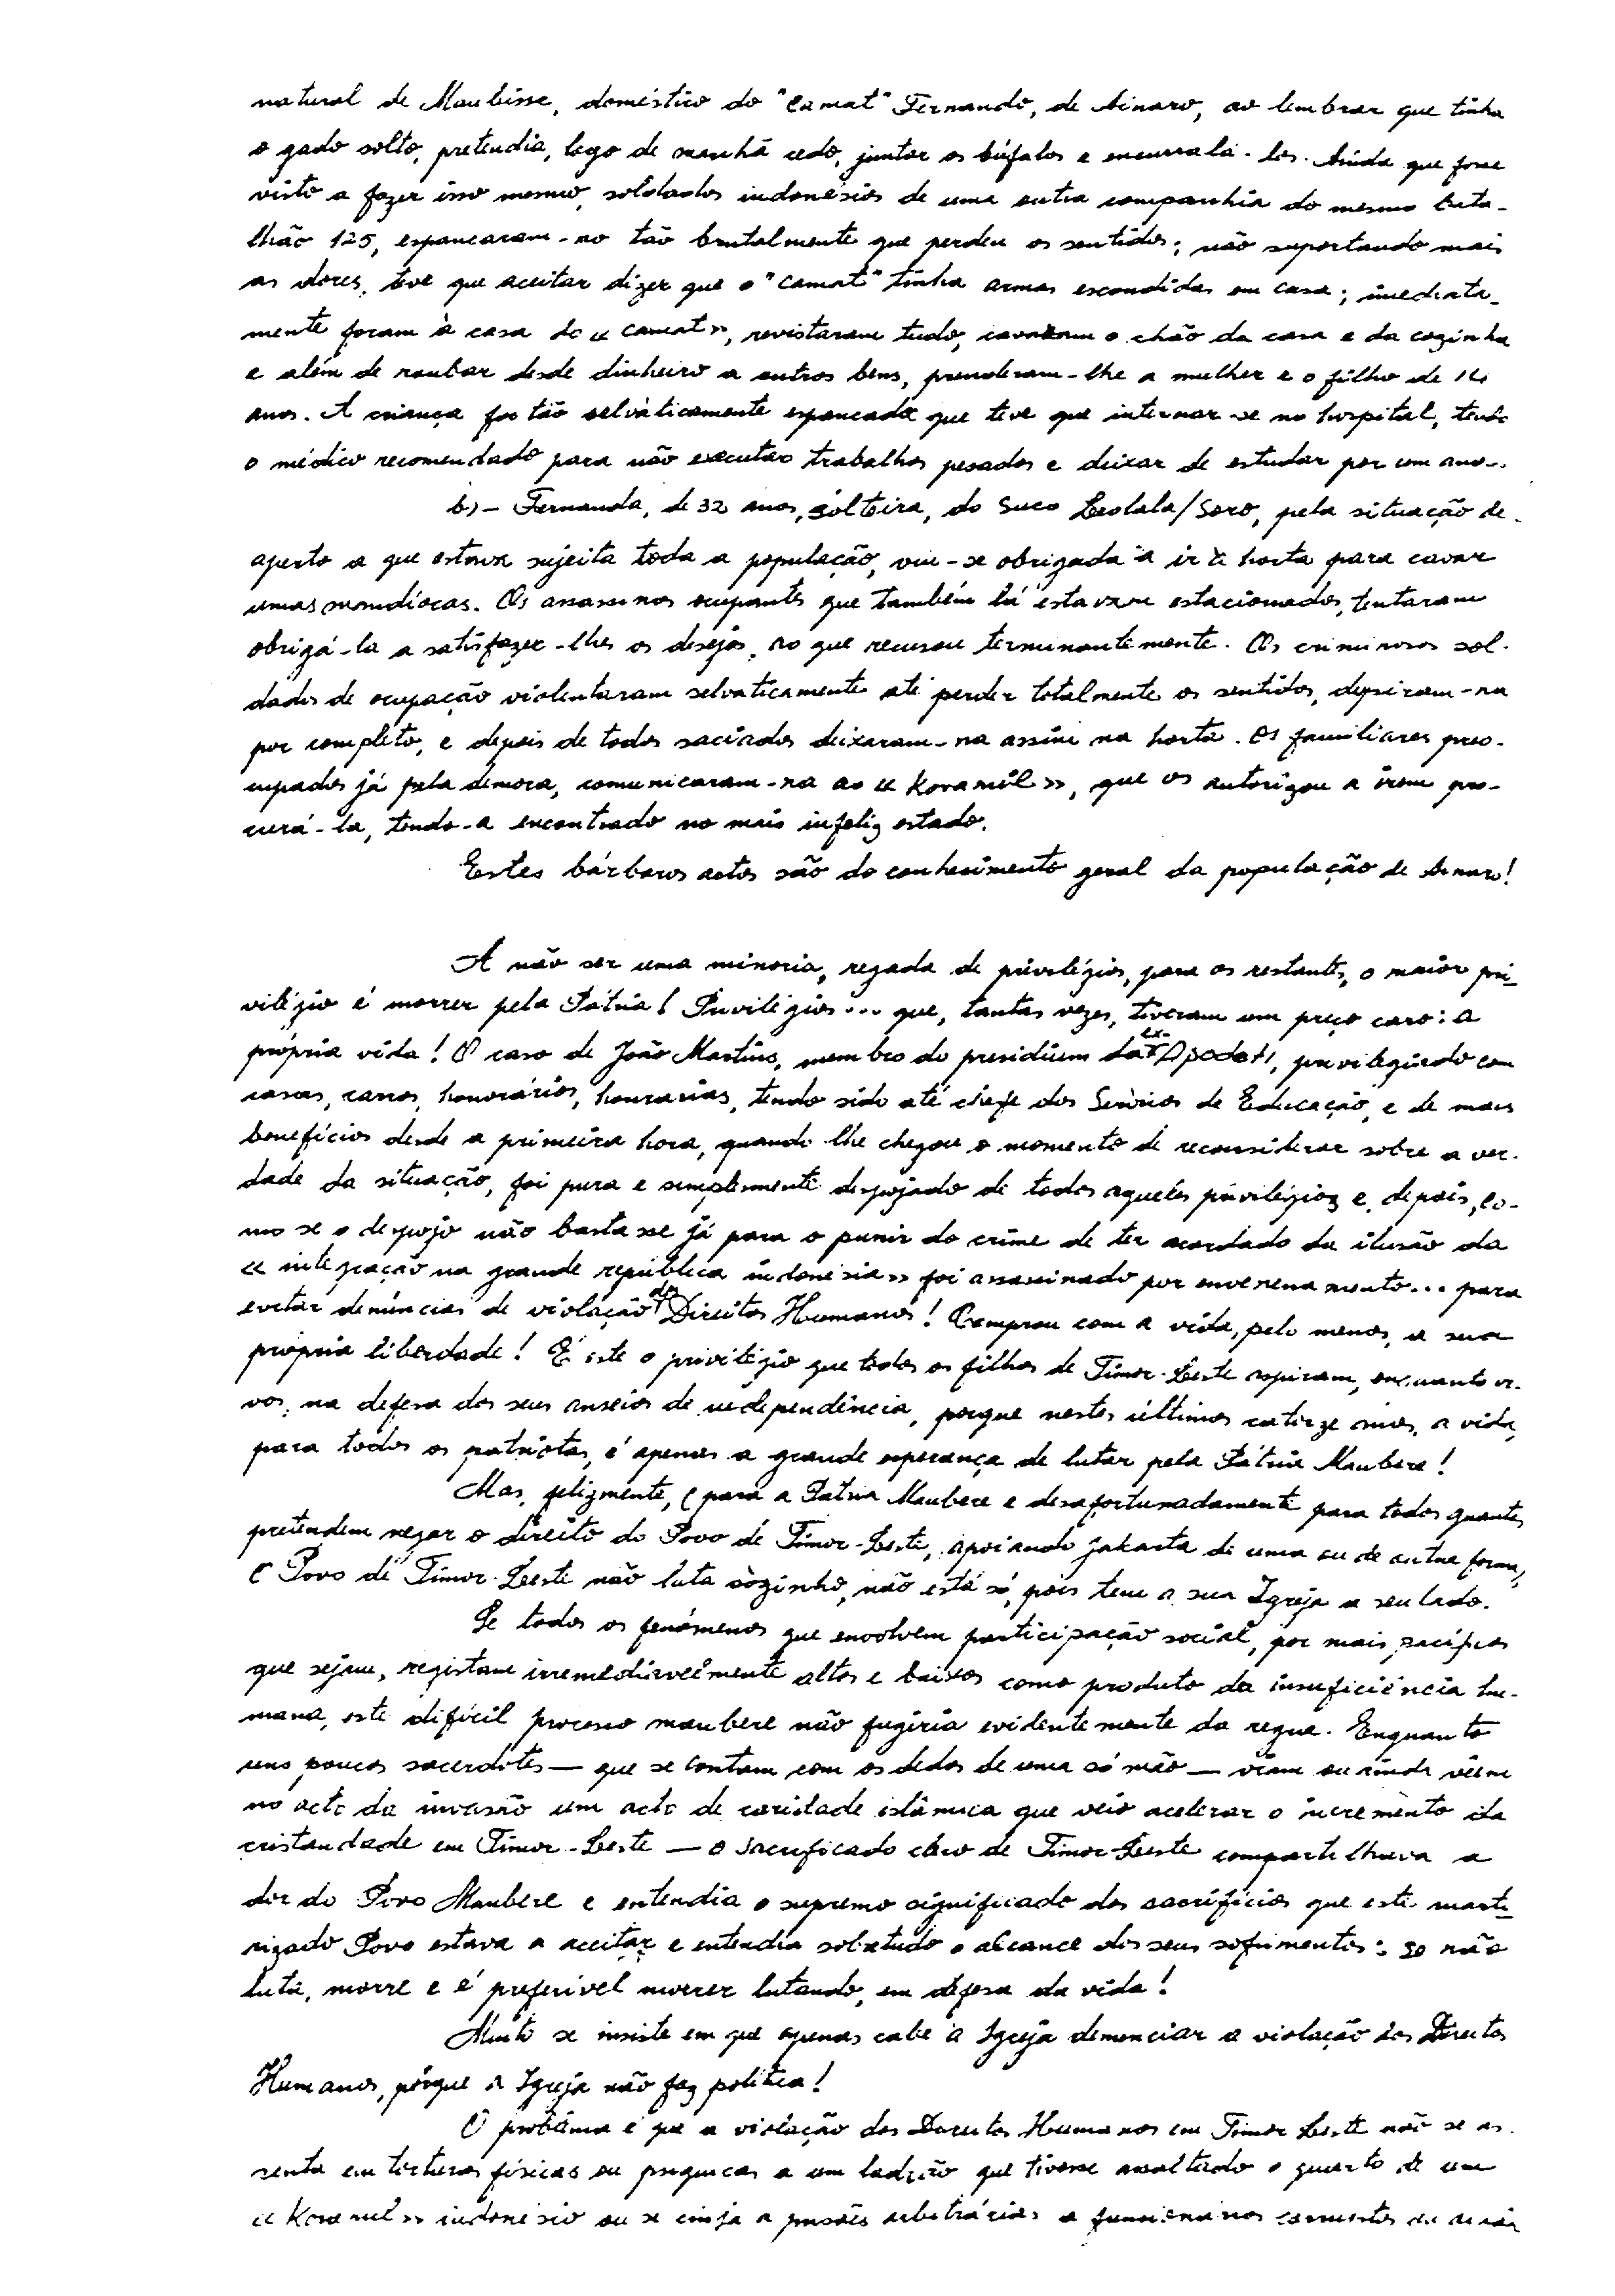 natural de Maubisse, doméstico do "camat" Fernando, de Ainaro, ao lembrar que tinha
o gado solto, pretendia, logo de manhã cedo, juntar os búfalos e encurralá-los. Ainda que fosse
visto a fazer isso mesmo, soldados indonésios de uma outra companhia do mesmo bata-
lhão 125, espancaram-no tão brutalmente que perdeu os sentidos; não suportando mais
as dores, teve que aceitar dizer que o "camat" tinha armas escondidas em casa; imediata-
mente foram à casa do « camat», revistaram tudo, cavaram o chão da casa e da cozinha
e além de roubar desde dinheiro a outros bens, prenderam-lhe a mulher e o filho de 14
anos. A criança foi tão selvàticamente espancada que teve que internar-se no hospital, tendo
o médico recomendado para não executar trabalhos pesados e deixar de estudar por um ano...
b)- Fernanda, de 32 anos, solteira, do Suco Leolala/Soro, pela situação de
aperto a que estava sujeita toda a população, viu-se obrigada a ir à horta para cavar
umas mandiocas. Os assassinos ocupantes que também lá estavam estacionados, tentaram
obrigá-la a satisfazer-lhes os desejos, ao que recusou terminantemente. Os criminosos sol-
dados de ocupação violentaram selvaticamente até perder totalmente os sentidos, despiram-na
por completo, e depois de todos saciados deixaram-na assim na horta. Os familiares preo-
cupados já pela demora, comunicaram-na ao « Koramil », que os autorizou a irem pro-
curá-la, tendo-a encontrado no mais infeliz estado.
Estes bárbaros actos são do conhecimento geral da população de Ainaro!
A não ser uma minoria, regada de privilégios, para os restantes, o maior pri-
vilégio é morrer pela Pátria! Privilégios... que, tantas vezes, tiveram um preço caro: a
própria vida! O caso de João Martins, membro do presidium da ex-Apodeti, privilegiado com
casas, carros, honorários, honrarias, tendo sido até chefe dos Serviços de Educação, e de mais
benefícios desde a primeira hora, quando lhe chegou o momento de reconsiderar sobre a ver-
dade da situação, foi pura e simplesmente despojado de todos aqueles privilégios e, depois, co-
mo se o despojo não bastasse já para o punir do crime de ter acordado da ilusão da
« integração na grande república indonésia» foi assassinado por envenenamento... para
evitar denúncias de violação dos Direitos Humanos! Comprou com a vida, pelo menos, a sua
própria liberdade! É este o privilégio que todos os filhos de Timor-Leste aspiram, enquanto vi-
vos, na defesa dos seus anseios de independência, porque nestes últimos catorze anos, a vida,
para todos os patriotas, é apenas a grande esperança de lutar pela Pátria Maubere!
Mas, felizmente, (para a Pátria Maubere e desafortunadamente para todos quantos
pretendem negar o direito do Povo de Timor-Leste, apoiando Jakarta de uma ou de outra forma),
o Povo de Timor-Leste não luta sòzinho, não está só, pois tem a sua Igreja a seu lado.
Se todos os fenómenos que envolvem participação social, por mais pacíficos
que sejam, registam irremediàvelmente altos e baixos como produto da insuficiência hu-
mana, este difícil processo maubere não fugiria evidentemente da regra. Enquanto
uns poucos sacerdotes — que se contam com os dedos de uma só mão — viam ou ainda vêem
no acto da invasão um acto de caridade islâmica que veio acelerar o incremento da
cristandade em Timor-Leste — o sacrificado clero de Timor-Leste compartilhava a
dor do Povo Maubere e entendia o supremo significado dos sacrifícios que este marti-
rizado Povo estava a aceitar e entendia sobretudo o alcance dos seus sofrimentos: se não
luta, morre e é preferível morrer lutando, em defesa da vida!
Muito se insiste em que apenas cabe à Igreja denunciar a violação dos Direitos
Humanos, porque a Igreja não faz política!
O problema é que a violação dos Direitos Humanos em Timor Leste não se as-
senta em torturas físicas ou psíquicas a um ladrão que tivesse assaltado o quarto de um
« Koramil » indonésio ou se cinja a prisões arbitrárias a funcionários